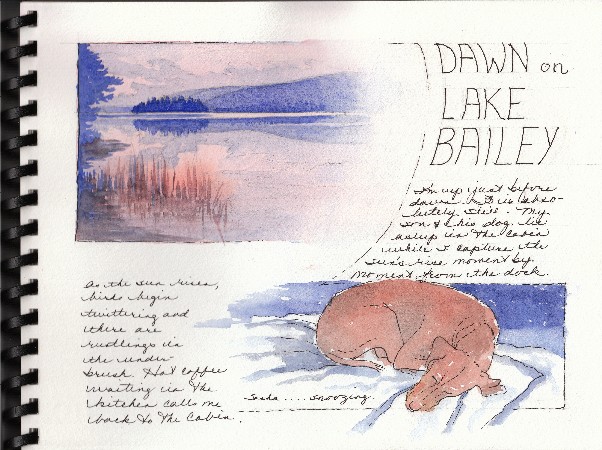 DAWN on
LAKE
BAILEY
I'm up just before
dawn. It is abso-
lutely still. My
son & his dog lie
asleep in the cabin
while I capture the
sun's rise moment by
moment from the dock.
As the sun rises,
birds begin
twittering and
there are
rustlings in
the under-
brush. Hot coffee
waiting in the
kitchen calls me
back to the cabin.
.... snoozing.